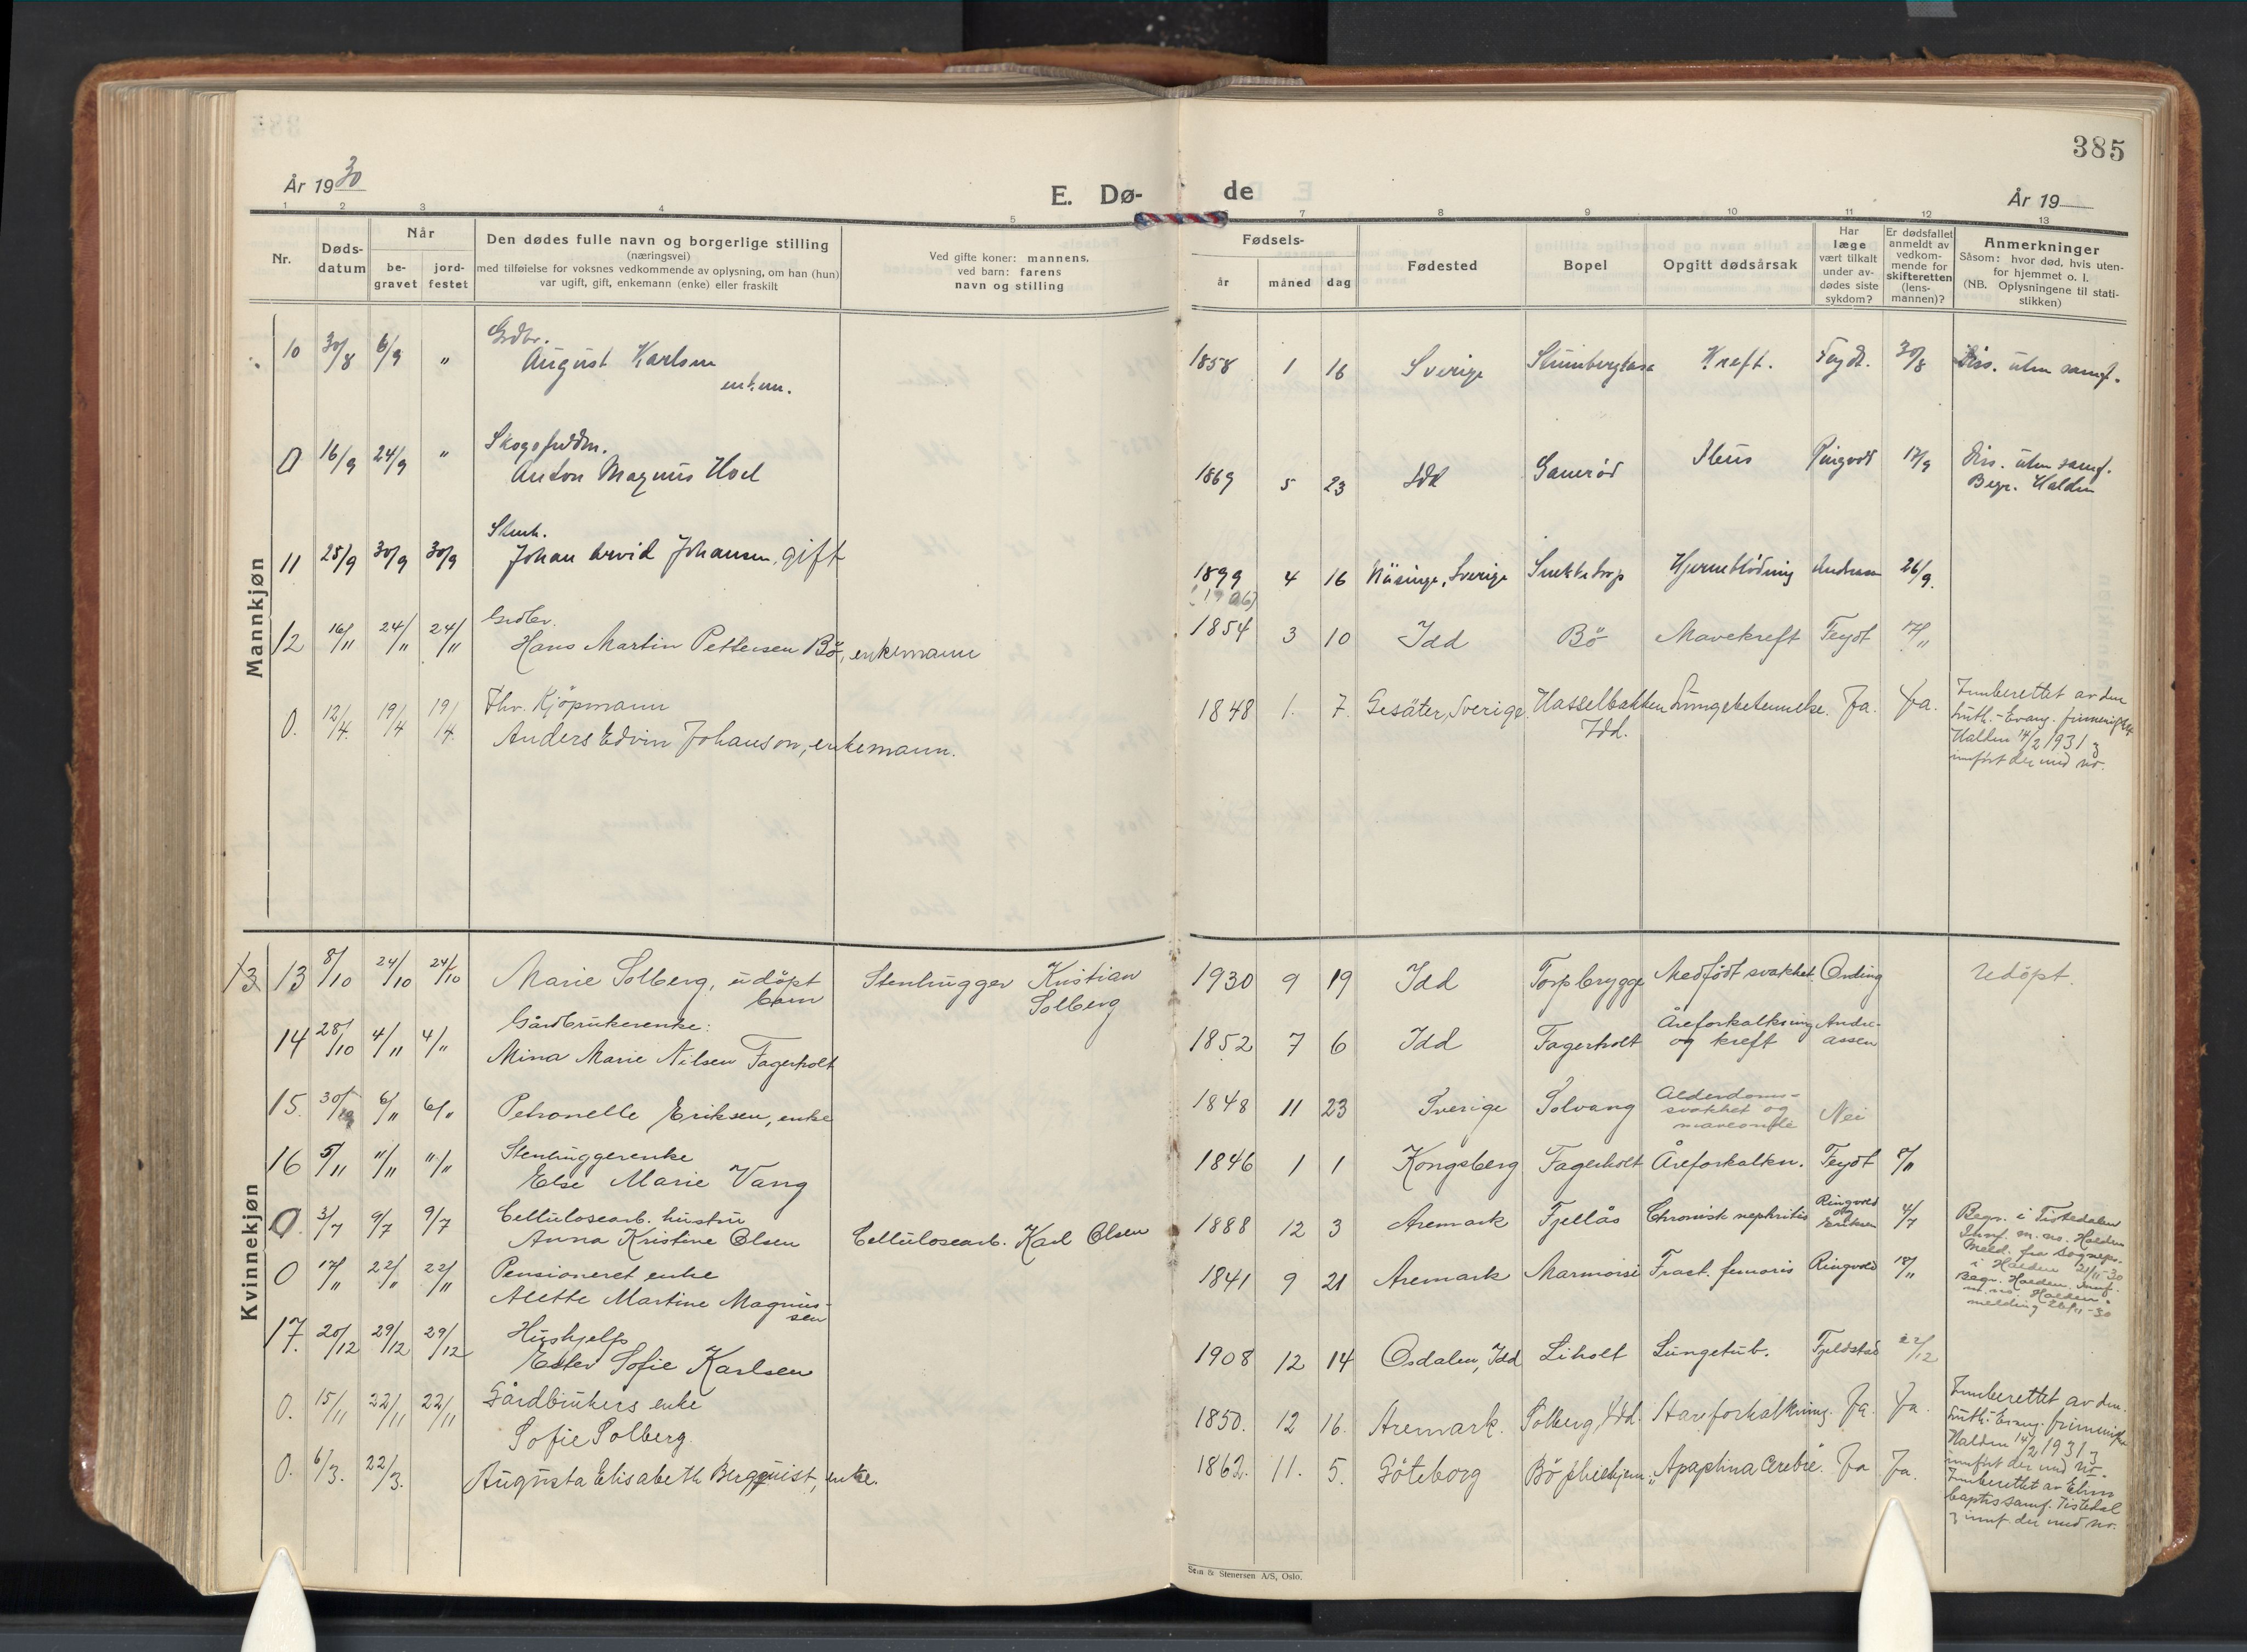 385
År 1930
E. Dø-
de
År 19
1 2 3 4 5 6 7 8 9 10 11 12 13
Nr.
Døds-
datum
Når
be-
gravet
jord-
festet
Den dødes fulle navn og borgerlige stilling
(næringsvei)
med tilføielse for voksnes vedkommende av oplysning, om han (hun)
var ugift, gift, enkemann (enke) eller fraskilt
Ved gifte koner: mannens,
ved barn: farens
navn og stilling
Fødsels-
år
måned
dag
Fødested
Bopel
Opgitt dødsårsak
Har
læge
vært tilkalt
under av-
dødes siste
sykdom?
Er dødsfallet
anmeldt av
vedkom-
mende for
skifteretten
(lens-
mannen)?
Anmerkninger
Såsom: hvor død, hvis uten-
for hjemmet o. l.
(NB. Oplysningene til stati-
stikken)
Mannkjøn
Grdbr.
10 30/8 6/9 " August Karlsen 1858 1 16 Sverige Kreft. Feydt. 30/8 Diss. uten samf.
enkem.
0 16/9 24/9 " Anton Magnus Hoel 1869 5 23 Idd Ileus Ringvold 17/9 Diss. uten samf.
Begr. Halden
Stenh.
11 25/9 30/9 30/9 Johan Arvid Johansen, gift 1899 4 16 Näsinge, Sverige Hjerneblødning 26/9.
(1906)
Grdbr.
12 16/11 24/11 24/11 Hans Martin Pettersen Bö, enkemann 1854 3 10 Idd Bö Mavekreft Feydt 17/11
Fhv. Kjöpmann
0. 12/4. 19/4 19/4. Anders Edvin Johanson, enkemann. 1848 1. 7. Gesäter, Sverige. Hasselbakken Lungebetennelse. Ja. Ja.
Idd.
Innberettet av den
Luth.-Evang. frimenighet
Halden 14/2 1931 og
innført der med no.
Kvinnekjøn
13 13 8/10 24/10 24/10 Marie Solberg, udöpt Stenhugger Kristian 1930 9 19 Idd Torpbrygge Medfödt svakhet. Ording Udöpt.
barn Solberg
Gårdbrukerenke:
14 28/10 4/11 4/11 Mina Marie Nilsen Fagerholt 1852 7 6 Idd Fagerholt Åreforkalkning Andre-
og kreft assen
15. 30/10 6/11 6/11 Petronelle Eriksen, enke 1848 11 23 Sverige Solvang Alderdoms-
svakhet og Nei
maveonde
Stenhuggerenke
16 5/11 11/11 11/11 Else Marie Vang 1846 1 1 Kongsberg Fagerholt Åreforkalkn. Feydt 8/11
Cellulosearb. hustru
0. 3/7 9/7 9/7 Anna Kristine Olsen Cellulosearb. Karl Olsen 1888 12 3 Aremark Fjellås Chronisk nephritis Ringvold
og
Eriksen 4/7
Begr. i Tistedalen
Innf. m. no. Halden
Meld. fra sognepr.
i Halden 21/11-30
Pensioneret enke
0 17/11 22/11 22/11 Alette Martine Magnus-
sen 1841 9 21 Aremark Fract. femoris Ringvold 18/11
Begr. Halden. Innf.
m. no. Halden.
Hushjelp
17. 20/12 29/12 29/12 Ester Sofie Karlsen 1908 12 14 Osdalen, Idd Liholt Lungetub. Fjeldstad 22/12
Gårdbrukers enke
0. 15/11 22/11 22/11 Sofie Solberg. 1850. 12 16. Aremark. Solberg, Idd. Ja. Ja.
Innberettet av den
Luth.-Evang. frimenighet
Halden 14/2 1931 og
innført der med no.
0. 6/3. 22/3. Augusta Elisabeth Bergquist, enke. 1862. 11. 5. Göteborg Bö pleiehjem. Ja Ja.
Innberettet av Elim
baptistsamf. Tistedal
og innf. der med no.
Sem & Stenersen A/S, Oslo.